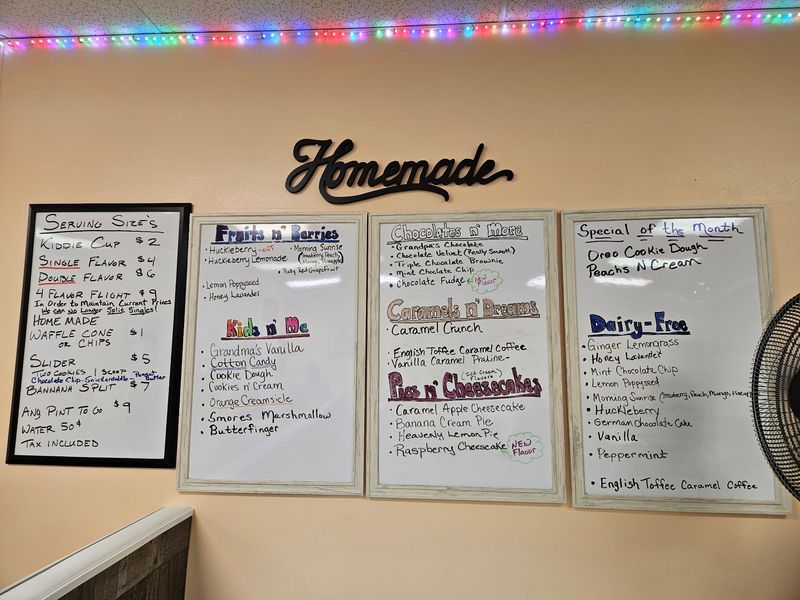 Homemade
SERVING SIZE'S
KIDDIE CUP $2
SINGLE FLAVOR $4
DOUBLE FLAVOR $6
4 FLAVOR FLIGHT $9
IN ORDER TO MAINTAIN CURRENT PRICES
WE CAN NO LONGER SPLIT SINGLES!
HOME MADE
WAFFLE CONE $1
OR CHIPS
SLIDER $5
TWO COOKIES 1 SCOOP
Chocolate Chip-Snickerdoodle-Peanut Butter
BANNANA SPLIT $7
ANY PINT TO GO $9
WATER 50¢
TAX INCLUDED
Fruits n' Berries
• Huckleberry -OUT
• Huckleberry Lemonade
• Morning Sunrise
(Strawberry, Peach, Mango, Pineapple)
• Ruby Red Grapefruit
• Lemon Poppyseed
• Honey Lavander
Kids n' Me
• Grandma's Vanilla
• Cotton Candy
• Cookie Dough
• Cookies n' Cream
• Orange Creamsicle
• Smores Marshmallow
• Butterfinger
Chocolates n' More
• Grandpa's Chocolate
• Chocolate Velvet (Really Smooth)
• Triple Chocolate Brownie
• Mint Choclate Chip
• Chocolate Fudge New Flavor
Caramels n' Dreams
• Caramel Crunch
• English Toffee Caramel Coffee
• Vanilla Caramel Praline-
Pies n' Cheesecakes
(Ice Cream Flavors)
• Caramel Apple Cheesecake
• Banana Cream Pie
• Heavenly Lemon Pie
• Raspberry Cheesecake NEW Flavor
Special of the Month
Oreo Cookie Dough
Peachs N Cream
Dairy-Free
• Ginger Lemongrass
• Honey Lavander
• Mint Chocolate Chip
• Lemon Poppyseed
• Morning Sunrise (Strawberry, Peach, Mango,
• Huckleberry
• German Chocolate Cake
• Vanilla
• Peppermint
• English Toffee Caramel Coffee